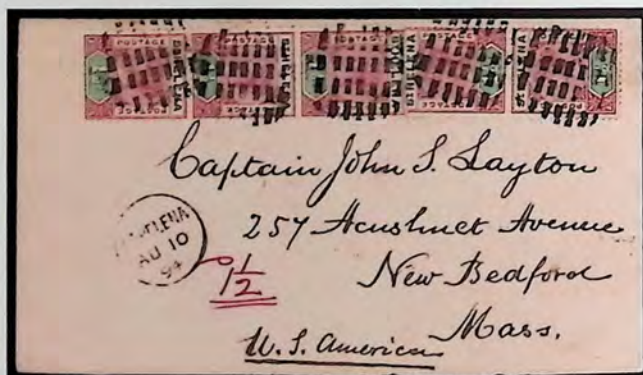 POSTAGE
ST HELENA
POSTAGE
POSTAGE
POSTAGE
Captain John S. Layton
257 Acushnet Avenue
New Bedford
Mass.
U.S. America
HELENA
AU 10
94
1 1/2